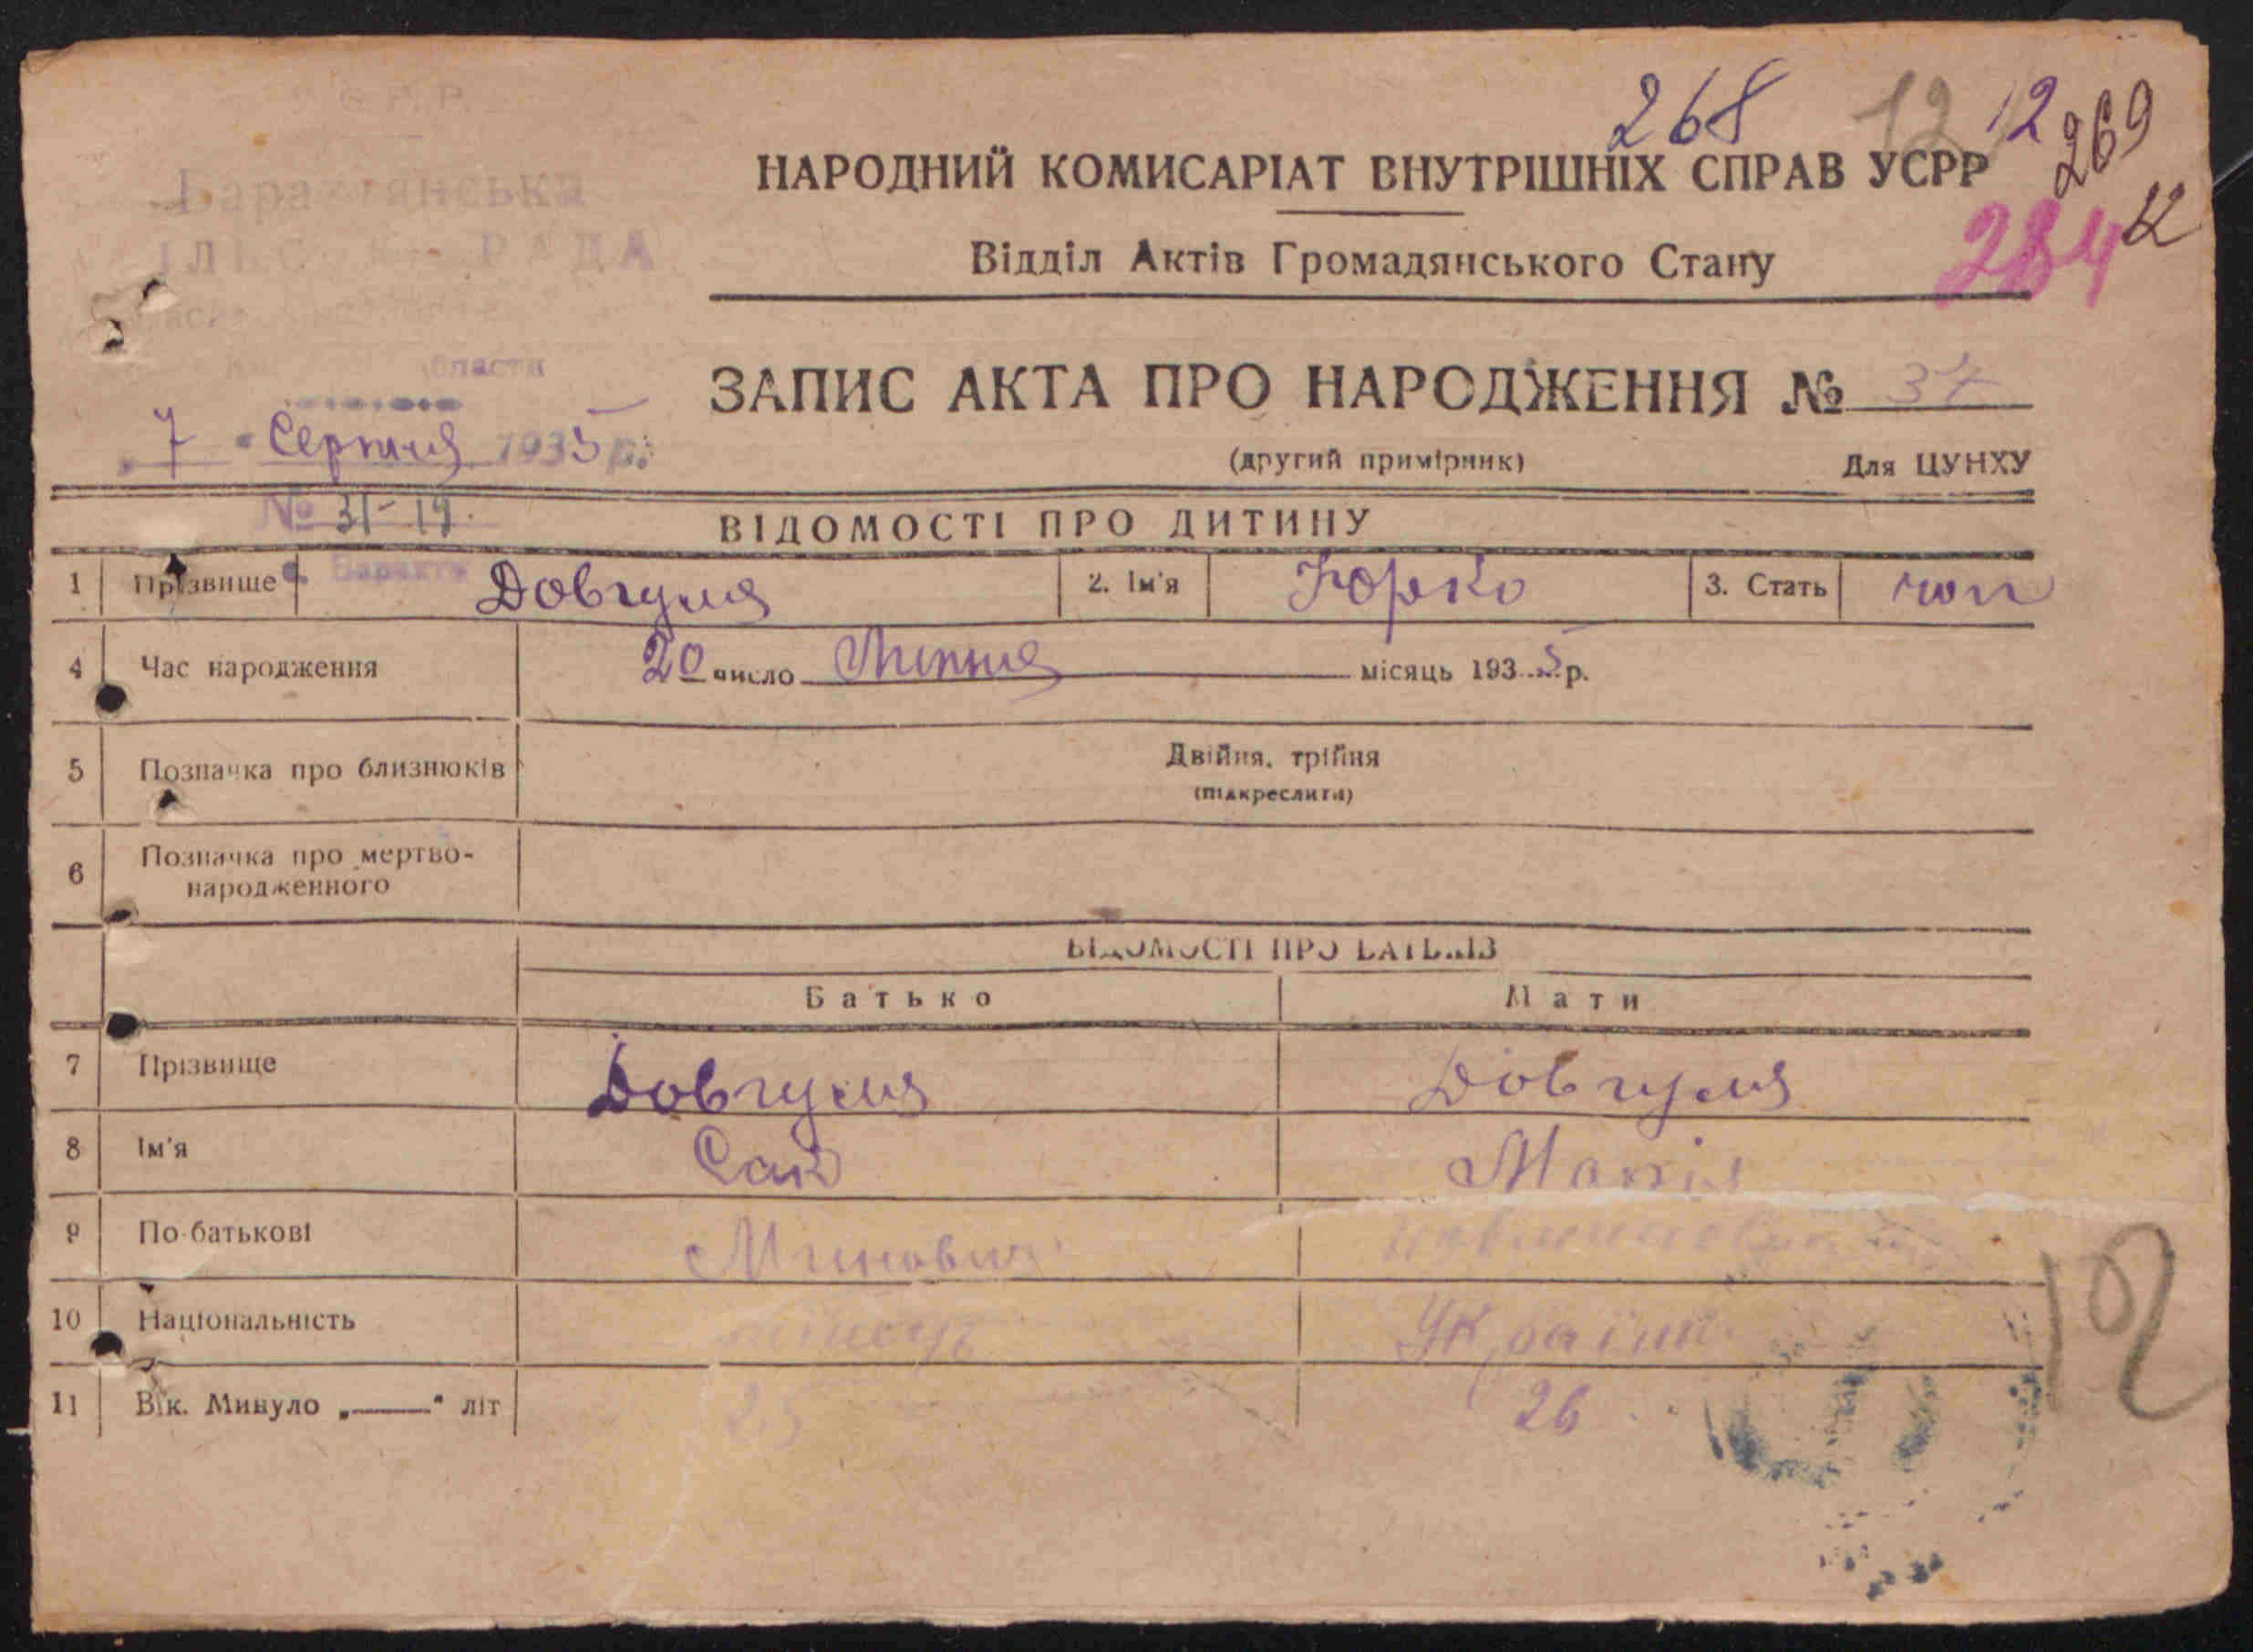 268 12 12 269
С.Р.Р.
НАРОДНИЙ КОМИСАРІАТ ВНУТРІШНІХ СПРАВ УСРР
РАДА
284 12
Відділ Актів Громадянського Стану
області
ЗАПИС АКТА ПРО НАРОДЖЕННЯ № 37
7 Серпня 1935 р.
(другий примірник) Для ЦУНХУ
№ 31-19.
ВІДОМОСТІ ПРО ДИТИНУ
1 Прізвище Довгуля 2. Ім'я Юрко 3. Стать чол
4 Час народження 20 число Липня місяць 1935 р.
5 Позначка про близнюків Двійня, трійня
(підкреслити)
6 Позначка про мертво-
народженного
ВІДОМОСТІ ПРО БАТЬКІВ
Батько Мати
7 Прізвище Довгуля Довгуля
8 Ім'я Сак Марія
9 По-батькові Минович
10 Національність Українк
11 Вік. Минуло „——“ літ 25 26
12